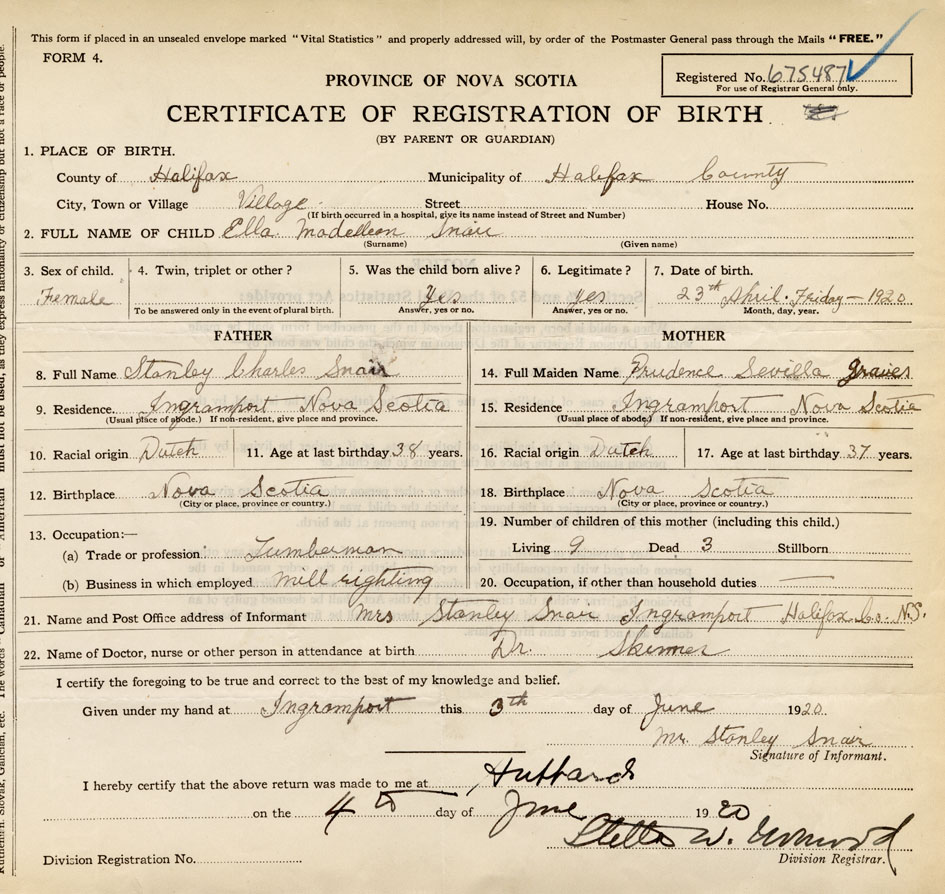 This form if placed in an unsealed envelope marked “Vital Statistics” and properly addressed will, by order of the Postmaster General pass through the Mails “FREE.”
FORM 4.
Registered No. 675487
For use of Registrar General only.
PROVINCE OF NOVA SCOTIA
CERTIFICATE OF REGISTRATION OF BIRTH
(BY PARENT OR GUARDIAN)
1. PLACE OF BIRTH.
County of Halifax Municipality of Halifax County
City, Town or Village Village Street House No.
(If birth occurred in a hospital, give its name instead of Street and Number)
2. FULL NAME OF CHILD Ella Madelleen Snair
(Surname) (Given name)
3. Sex of child. 4. Twin, triplet or other? 5. Was the child born alive? 6. Legitimate? 7. Date of birth.
Female Yes yes 23th April. Friday — 1920
To be answered only in the event of plural birth. Answer, yes or no. Answer, yes or no. Month, day, year.
FATHER MOTHER
8. Full Name Stanley Charles Snair 14. Full Maiden Name Prudence Sevilla graves
9. Residence. Ingramport Nova Scotia 15. Residence Ingramport Nova Scotia
(Usual place of abode.) If non-resident, give place and province. (Usual place of abode.) If non-resident, give place and province.
10. Racial origin Dutch 11. Age at last birthday 38 years. 16. Racial origin Dutch 17. Age at last birthday 37 years.
12. Birthplace Nova Scotia 18. Birthplace Nova Scotia
(City or place, province or country.) (City or place, province or country.)
19. Number of children of this mother (including this child.)
13. Occupation:—
(a) Trade or profession Lumberman Living 9 Dead 3 Stillborn
(b) Business in which employed mill righting 20. Occupation, if other than household duties —
21. Name and Post Office address of Informant Mrs Stanley Snair Ingramport Halifax Co. N.S.
22. Name of Doctor, nurse or other person in attendance at birth Dr. Skinner
I certify the foregoing to be true and correct to the best of my knowledge and belief.
Given under my hand at Ingramport this 3th day of June 1920.
Mr. Stanley Snair
Signature of Informant.
I hereby certify that the above return was made to me at Hubbards
on the 4th day of June 1920
Stella W.
Division Registrar.
Division Registration No.